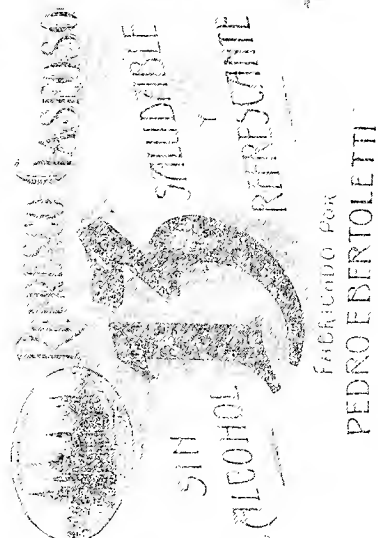 REFRESCO GASEOSO
SIN
ALCOHOL
SALUDABLE
Y
REFRESCANTE
FABRICADO POR
PEDRO E BERTOLETTI